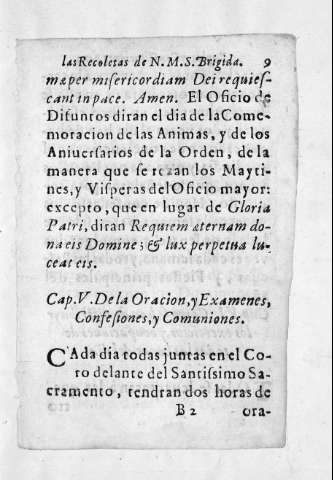 las Recoletas de N. M. S. Brigida. 9
mæ per misericordiam Dei requies-
cant in pace. Amen. El Oficio de
Difuntos diran el dia de la Come-
moracion de las Animas, y de los
Aniuersarios de la Orden, de la
manera que se rezan los Mayti-
nes, y Visperas del Oficio mayor:
excepto, que en lugar de Gloria
Patri, diran Requiem æternam do-
na eis Domine; & lux perpetua lu-
ceat eis.
Cap. V. De la Oracion, y Examenes,
Confesiones, y Comuniones.
CAda dia todas juntas en el Co-
ro delante del Santissimo Sa-
cramento, tendran dos horas de
B 2 ora-